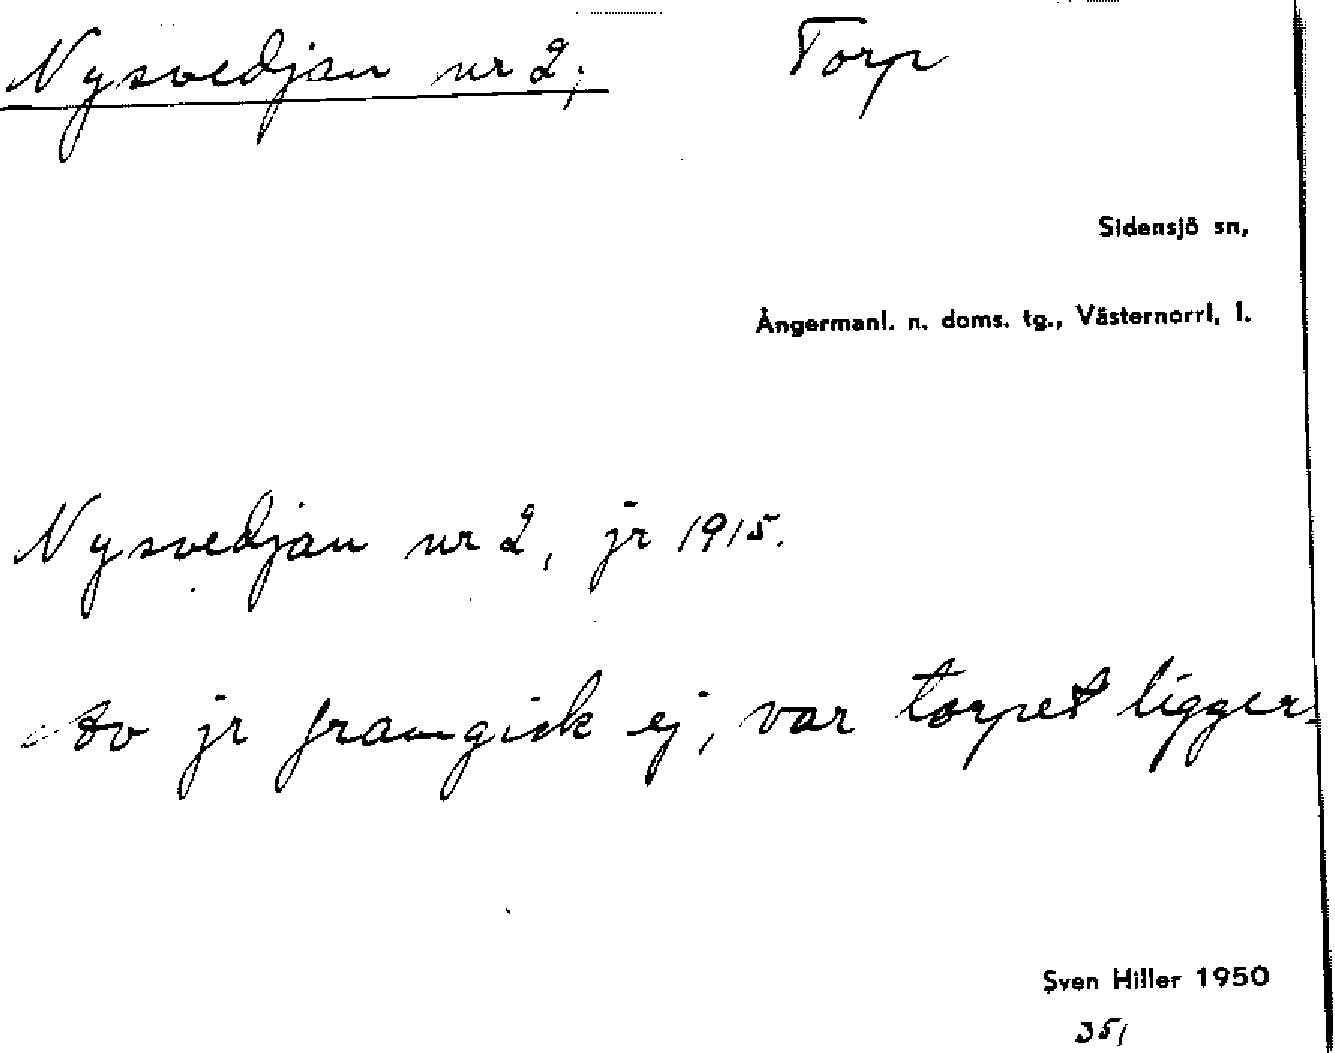 Nysvedjan nr 2, Torp
Sidensjö sn,
Ångermanl. n. doms. tg., Västernorrl. l.
Nysvedjan nr 2, jr 1915.
Av jr framgick ej, var torpet ligger.
Sven Hiller 1950
351